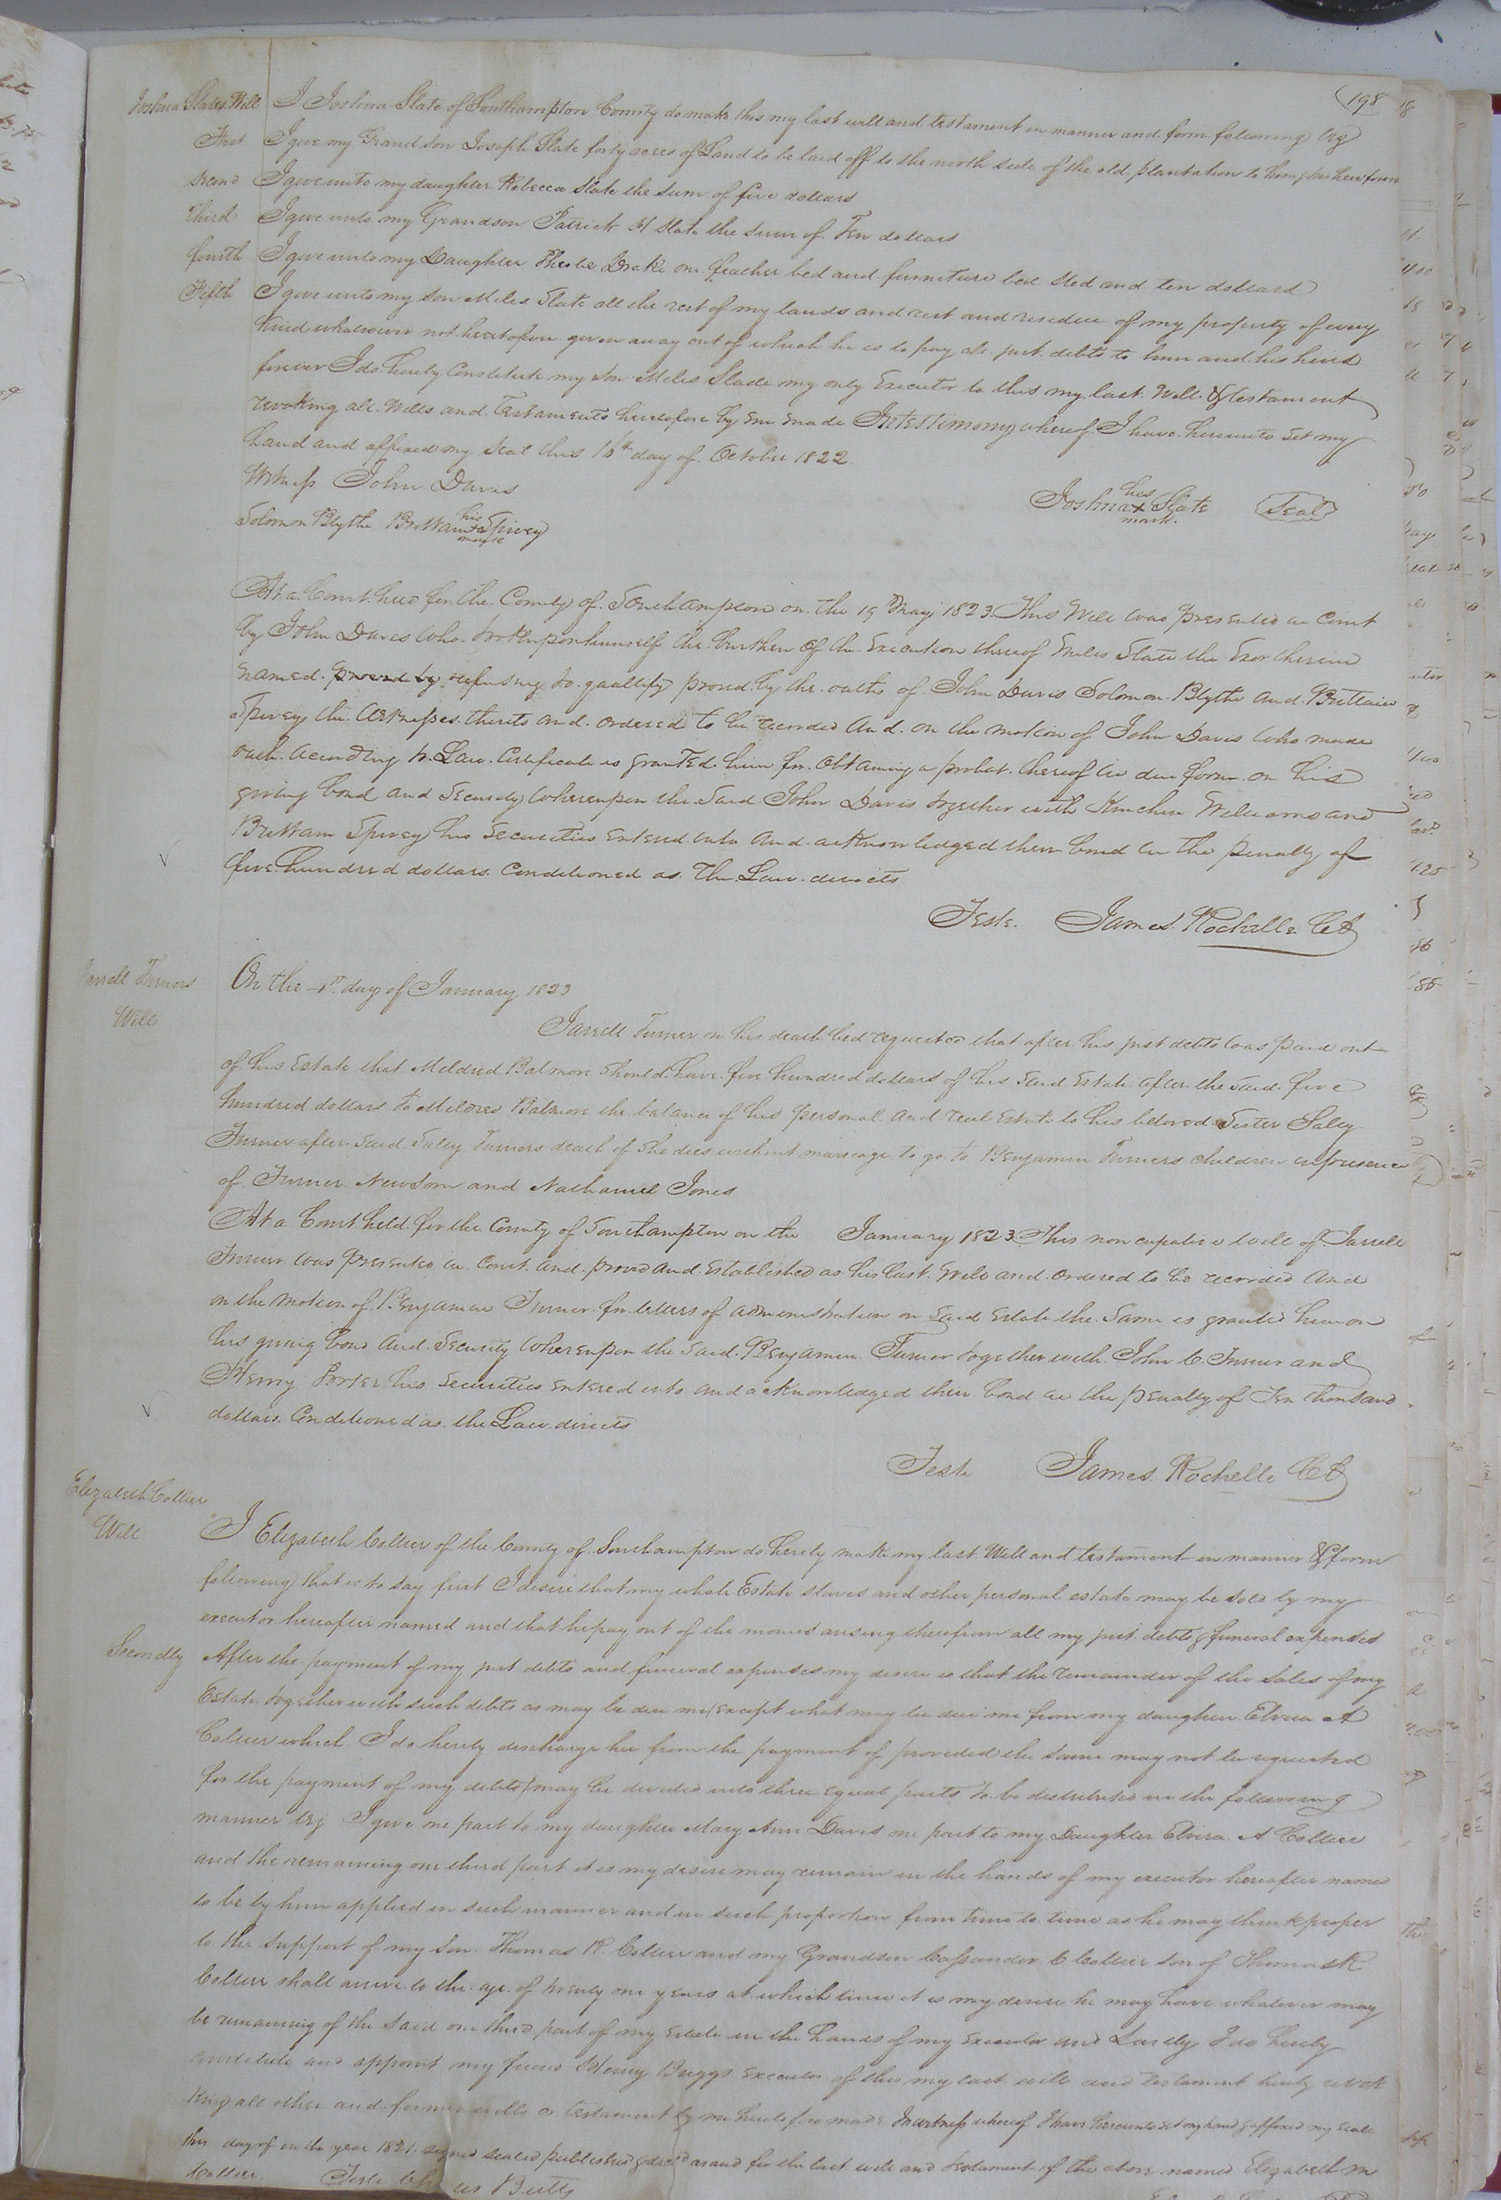 198
Joshua Slates Will I Joshua Slate of Southampton County do make this my last will and testament in manner and form following Viz
First I give my Grand Son Joseph Slate forty acres of Land to be laid off to the north side of the old plantation to him & his heirs forever
Second I give unto my daughter Rebecca Slate the sum of five dollars
Third I give unto my Grandson Patrick H Slate the sum of Ten dollars
fourth I give unto my Daughter Pheobe Drake one feather bed and furniture bed sted and ten dollars
Fifth I give unto my son Miles Slate all the rest of my lands and rest and residue of my property of every
kind whatsoever not heretofore given away out of which he is to pay all just debts to him and his heirs
forever I do hereby Constitute my son Miles Slade my only Executor to this my last Will & testament
revoking all Wills and Testaments heretofore by me made In testimony whereof I have hereunto set my
hand and affixed my seal this 16th day of October 1822
Witness John Davis
Joshua his x mark Slate Seal
Solomon Blythe Brittain his x mark Spivey
At a Court held for the County of Southampton on the 19 May 1823 This Will was presented in Court
by John Davis who took upon himself the burthen of the Execution thereof Miles Slate the Exor therein
named proved by refusing to quallify proved by the oaths of John Davis Solomon Blythe and Brittain
Spivey the Witnesses thereto and ordered to be recorded and on the motion of John Davis who made
oath according to Law Certificate is granted him for obtaining a probat thereof in due form on his
giving bond and Security Whereupon the said John Davis together with Kinchen Williams and
Brittain Spivey his securities entered into and acknowledged their bond in the penalty of
five hundred dollars Conditioned as The Law directs
Teste James Rochelle CC
Jarrell Turners Will
On the 1st day of January 1823
Jarrell Turner on his death bed requested that after his just debts was paid out
of his Estate that Mildred Balmore should have five hundred dollars of his said Estate after the said five
hundred dollars to Mildred Balmore the balance of his personal and real Estate to his beloved Sister Sally
Turner after said Sally Turners death if she dies without marriage to go to Benjamin Turners children in presence
of Turner Newsom and Nathaniel Jones
At a Court held for the County of Southampton on the January 1823 This noncupative will of Jarrell
Turner was presented in Court and proved and Established as his last Will and ordered to be recorded and
on the motion of Benjamin Turner for letters of administration on said Estate the same is granted him on
his giving bond and Security Whereupon the said Benjamin Turner together with John C Turner and
Henry Porter his securities entered into and acknowledged their bond in the penalty of Ten thousand
dollars Conditioned as the Law directs
Teste James Rochelle CC
Elizabeth Collier Will
I Elizabeth Collier of the County of Southampton do hereby make my last Will and testament in manner & form
following that is to say first I desire that my whole Estate slaves and other personal estate may be sold by my
executor hereafter named and that he pay out of the monies arising therefrom all my just debts & funeral expenses
Secondly After the payment of my just debts and funeral expenses my desire is that the remainder of the sales of my
Estate together with such debts as may be due me (except what may be due me from my daughter Elvira A
Collier which I do hereby discharge her from the payment of provided the same may not be requested
for the payment of my debts) may be divided into three equal parts to be distributed in the following
manner Viz I give one part to my daughter Mary Ann Davis one part to my Daughter Elvira A Collier
and the remaining one third part it is my desire may remain in the hands of my executor hereafter named
to be by him applied in such manner and in such proportion from time to time as he may think proper
to the support of my Son Thomas R Collier and my Grandson Cassander C Collier son of Thomas R
Collier shall arrive to the age of twenty one years at which time it is my desire he may have whatever may
be remaining of the said one third part of my Estate in the hands of my Executor and Lastly I do hereby
constitute and appoint my friend Henry Briggs Executor of this my last will and testament hereby revok
king all other and former wills or testament by me heretofore made In witness whereof I have hereunto set my hand & affixed my seal
this day of in the year 1821 signed sealed published & decd as and for the last will and testament of the above named Elizabeth M
Collier Teste Butts